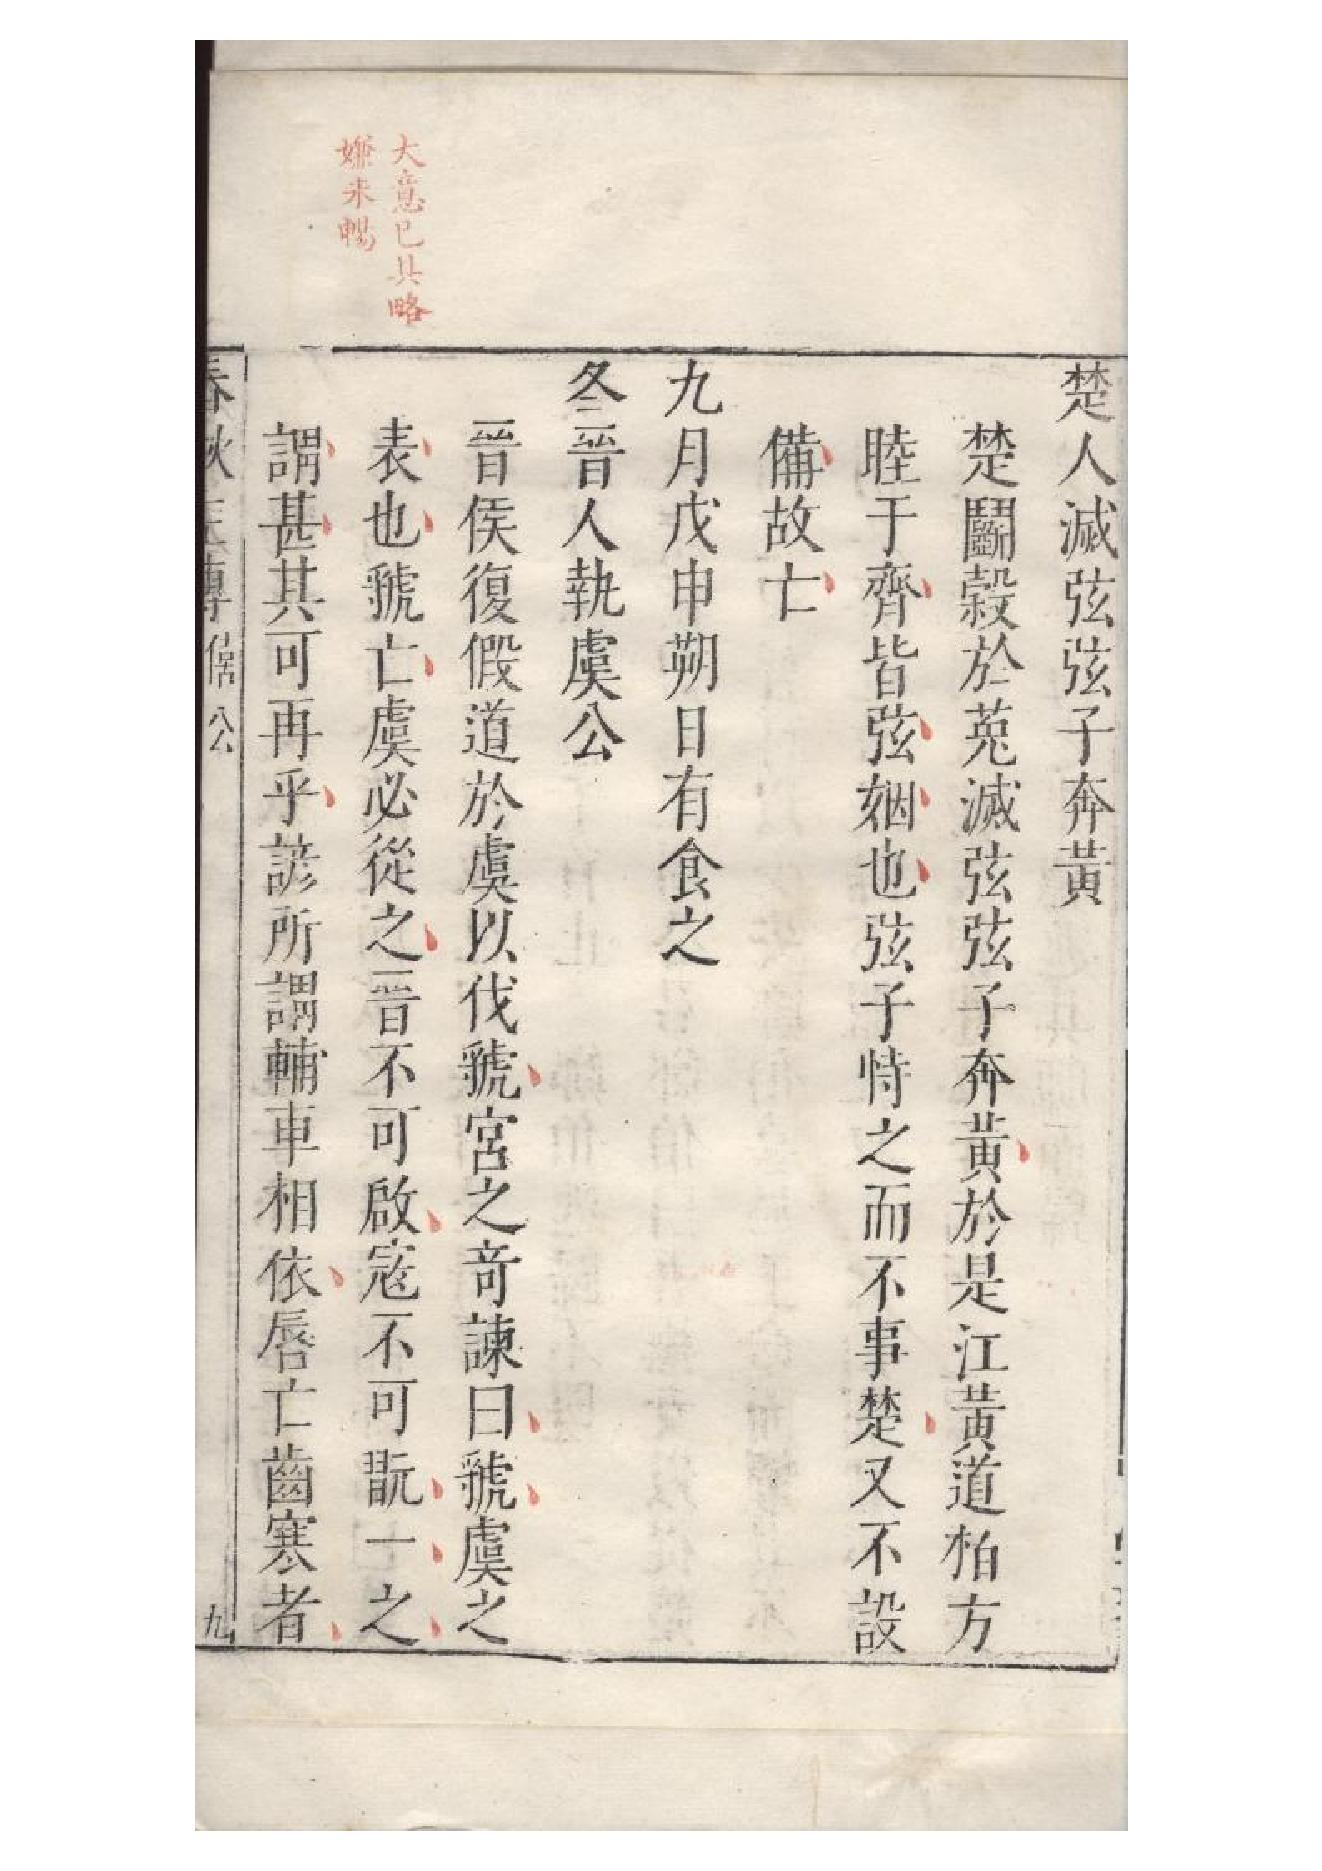 大意已具略
嫌未暢
楚人滅弦弦子奔黃
楚鬬穀於菟滅弦弦子奔黃於是江黃道柏方
睦于齊皆弦姻也弦子恃之而不事楚又不設
備故亡
九月戊申朔日有食之
冬晉人執虞公
晉侯復假道於虞以伐虢宮之奇諫曰虢虞之
表也虢亡虞必從之晉不可啟寇不可翫一之
謂甚其可再乎諺所謂輔車相依唇亡齒寒者
春秋左傳 僖公 九